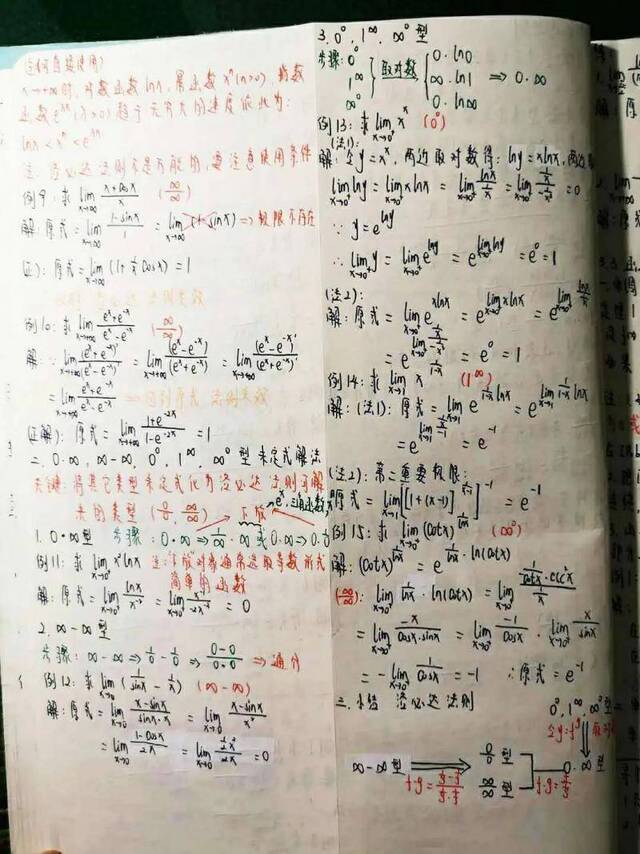 x→+∞时，对数函数lnx，幂函数xⁿ(n>0)，指数
函数e^{λx}(λ>0)趋于无穷大的速度依此为：
lnx < xⁿ < e^{λx}
注：洛必达法则不是万能的，要注意使用条件
例9：求 lim_{x→∞} (x+cosx)/x (∞/∞)
解：原式 = lim_{x→∞} (1-sinx)/1 = lim_{x→∞} (1-sinx) ⇒ 极限不存在
(正)：原式 = lim_{x→∞} (1+1/x cosx) = 1
例10：求 lim_{x→+∞} (e^x+e^{-x})/(e^x-e^{-x}) (∞/∞)
解：原式 = lim_{x→+∞} (e^x+e^{-x})'/(e^x-e^{-x})' = lim_{x→+∞} (e^x-e^{-x})/(e^x+e^{-x}) = lim_{x→+∞} (e^x-e^{-x})'/(e^x+e^{-x})'
= lim_{x→+∞} (e^x+e^{-x})/(e^x-e^{-x}) ⇒ 回到原式 法则失效
(正解)：原式 = lim_{x→+∞} (1+e^{-2x})/(1-e^{-2x}) = 1
二、0·∞, ∞-∞, 0⁰, 1^∞, ∞⁰型 未定式解法
关键：将其它类型未定式化为洛必达法则可解
决的类型 (0/0, ∞/∞)
1. 0·∞型 步骤：0·∞ ⇒ 1/∞·∞ 或 0·∞ ⇒ 0·1/0
例11：求 lim_{x→0⁺} x²lnx 注："下放"对象通常选取导数形式
简单的函数
解：原式 = lim_{x→0⁺} lnx/x^{-2} = lim_{x→0⁺} x^{-1}/(-2x^{-3}) = 0
2. ∞-∞型
步骤：∞-∞ ⇒ 1/0 - 1/0 ⇒ (0-0)/(0·0) ⇒ 通分
例12：求 lim_{x→0} (1/sinx - 1/x) (∞-∞)
解：原式 = lim_{x→0} (x-sinx)/(sinx·x) = lim_{x→0} (x-sinx)/x²
= lim_{x→0} (1-cosx)/2x = lim_{x→0} (½x²)/2x = 0
3. 0⁰, 1^∞, ∞⁰型
步骤：0⁰ 0·ln0
1^∞ 取对数 ∞·ln1 ⇒ 0·∞
∞⁰ 0·ln∞
例13：求 lim_{x→0⁺} x^x (0⁰)
(法1)：
解：令y=x^x，两边取对数得：lny=xlnx，两边
lim_{x→0⁺} lny = lim_{x→0⁺} xlnx = lim_{x→0⁺} lnx/(1/x) = lim_{x→0⁺} (1/x)/(-1/x²) = 0
∵ y = e^{lny}
∴ lim_{x→0⁺} y = lim_{x→0⁺} e^{lny} = e^{lim_{x→0⁺} lny} = e⁰ = 1
(法2)：
解：原式 = lim_{x→0⁺} e^{xlnx} = e^{lim_{x→0⁺} xlnx} = e^{lim_{x→0⁺} lnx/(1/x)}
= e^{lim_{x→0⁺} (1/x)/(-1/x²)} = e⁰ = 1
例14：求 lim_{x→1} x^{1/(1-x)} (1^∞)
解：(法1)：原式 = lim_{x→1} e^{1/(1-x) lnx} = e^{lim_{x→1} 1/(1-x) lnx}
= e^{lim_{x→1} (1/x)/(-1)} = e^{-1}
(法2)：第二重要极限：
原式 = lim_{x→1} [[1+(x-1)]^{1/(x-1)}]^{-1} = e^{-1}
例15：求 lim_{x→0⁺} (cotx)^{1/lnx} (∞⁰)
解：(cotx)^{1/lnx} = e^{1/lnx · ln(cotx)}
(∞/∞)：lim_{x→0⁺} 1/lnx · ln(cotx) = lim_{x→0⁺} (1/cotx · -csc²x)/(1/x)
= lim_{x→0⁺} -x/(cosx·sinx) = lim_{x→0⁺} -1/cosx · lim_{x→0⁺} x/sinx
= -lim_{x→0⁺} 1/cosx = -1 ∴原式 = e^{-1}
三、小结 洛必达法则
0⁰, 1^∞, ∞⁰型
∞-∞型 0/0 型 0·∞型
∞/∞ 型